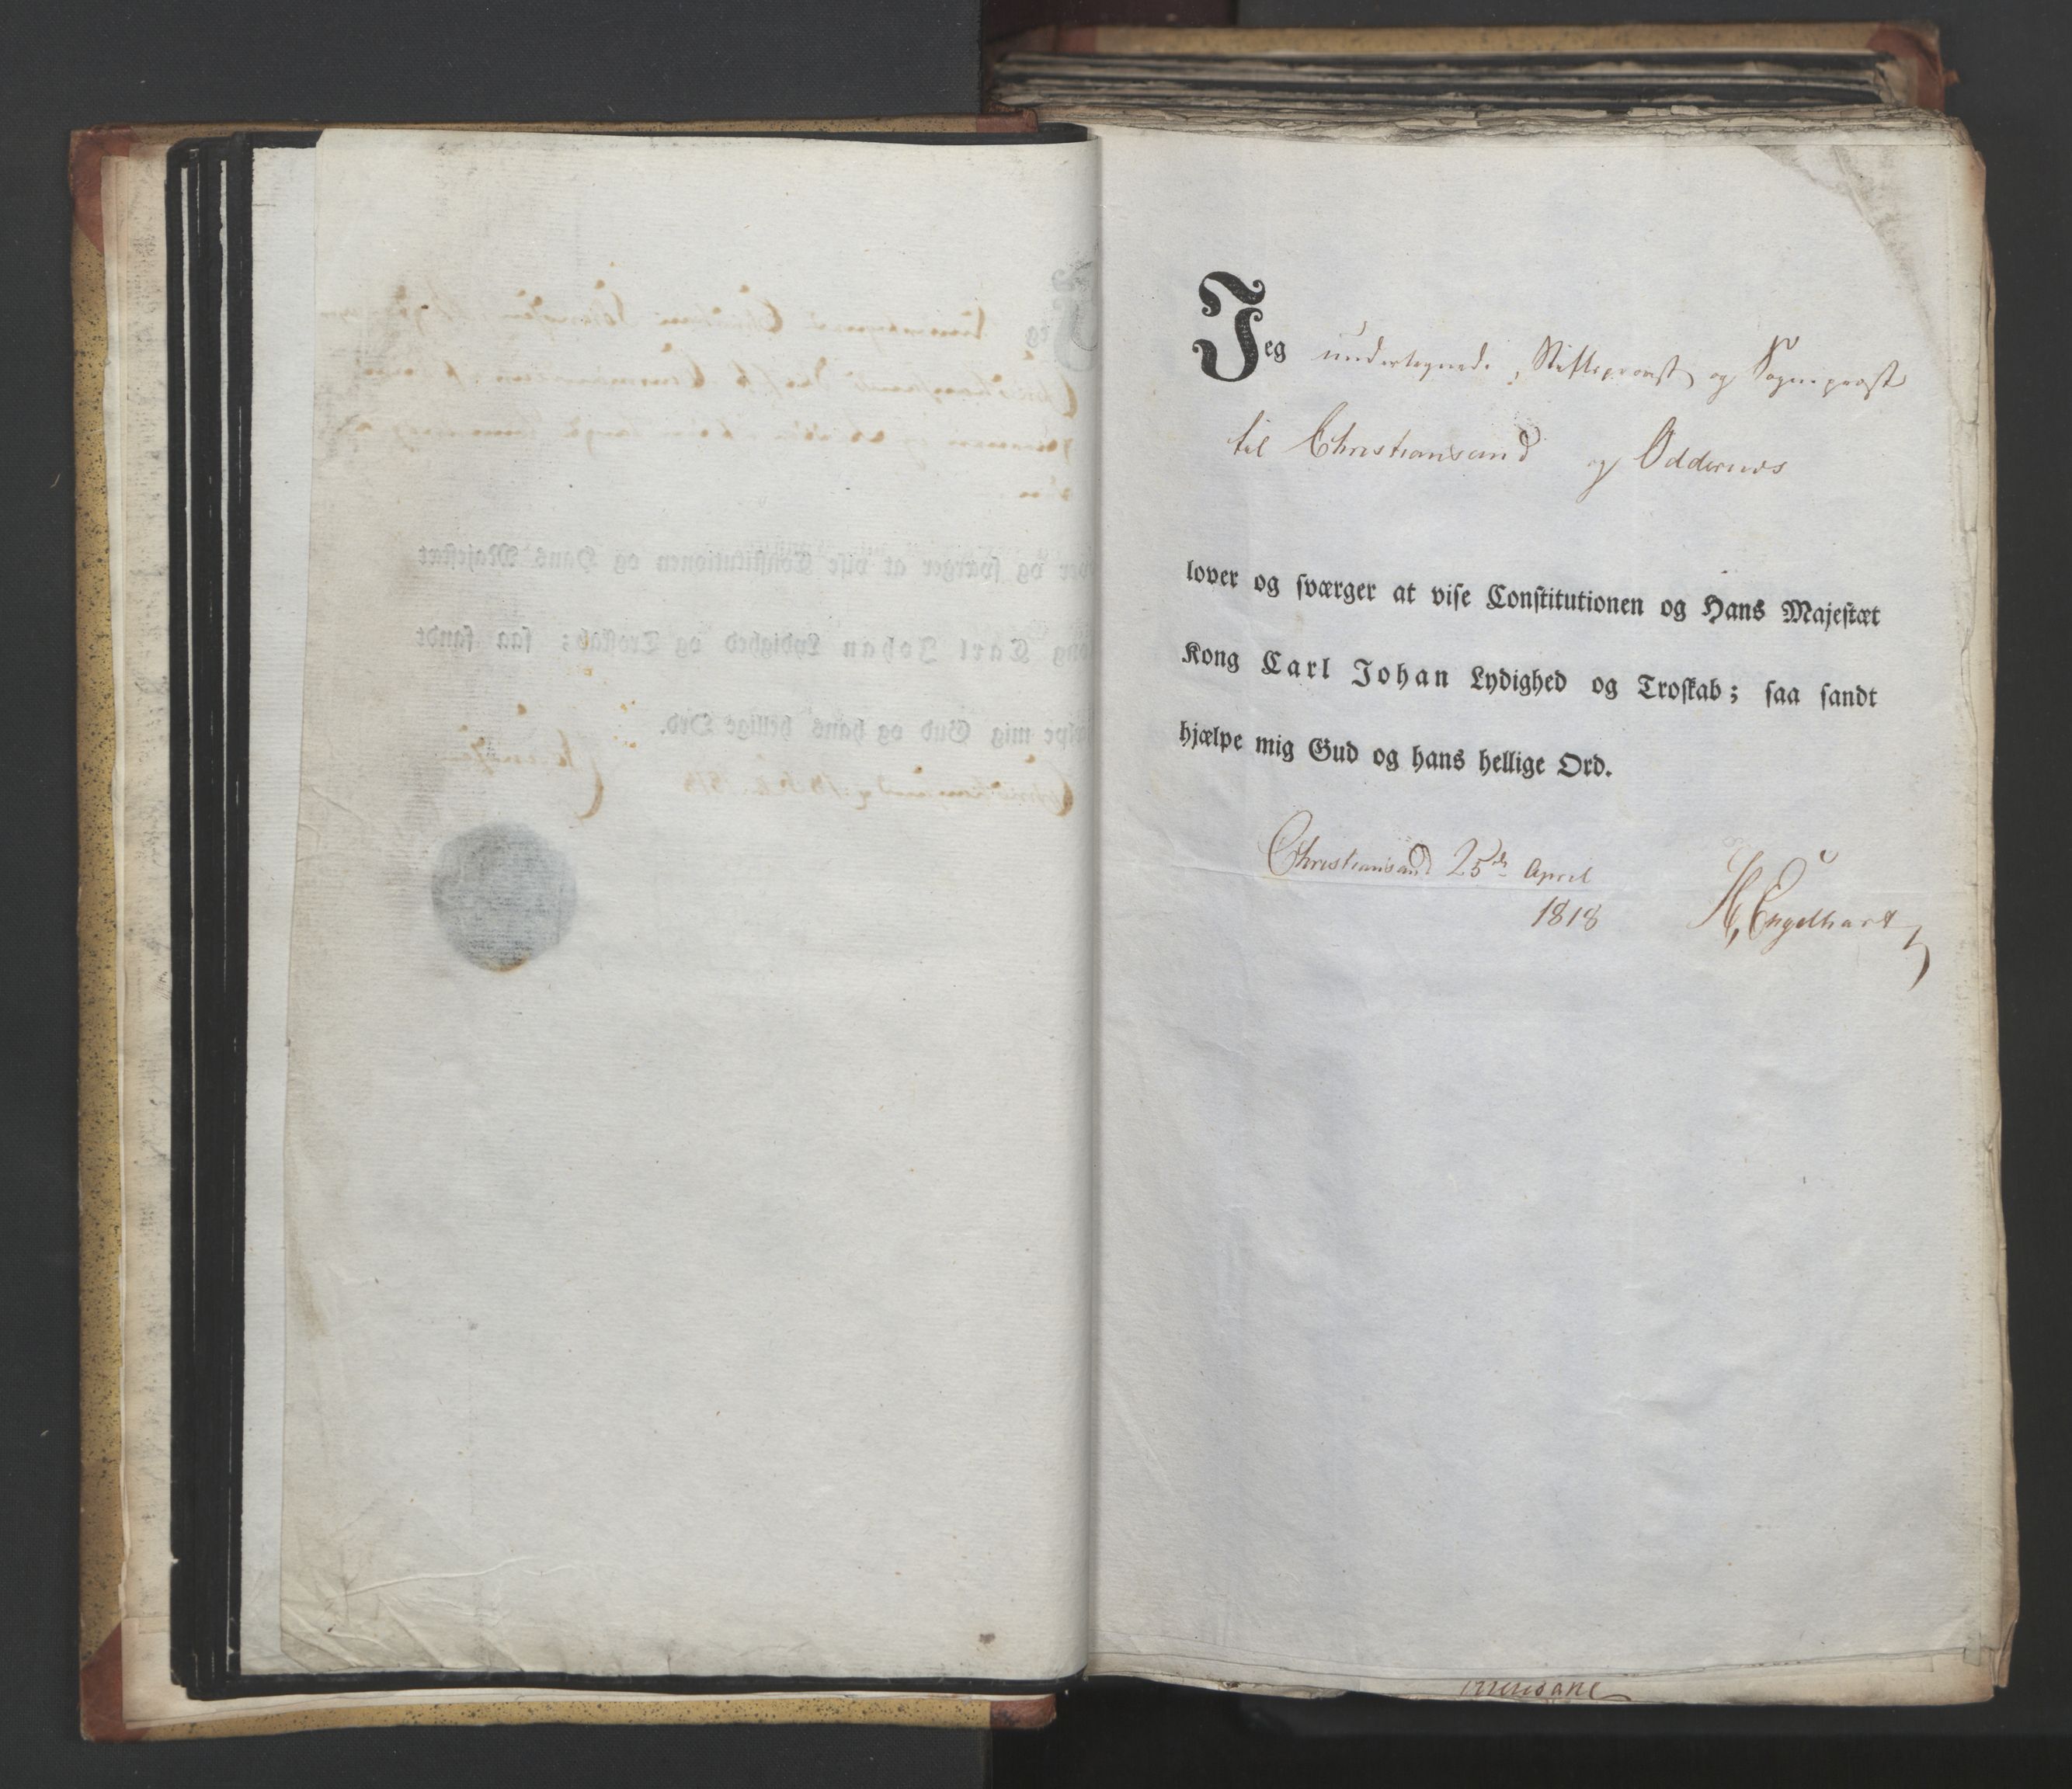 Jeg undertegnede, Stiftsprovst og Sogneprest
til Christiansand og Oddernes
lover og sværger at vise Constitutionen og Hans Majestæt
Kong Carl Johan Lydighed og Troskab; saa sandt
hjælpe mig Gud og hans hellige Ord.
Christiansand 25de April
1818
H, Engelhart